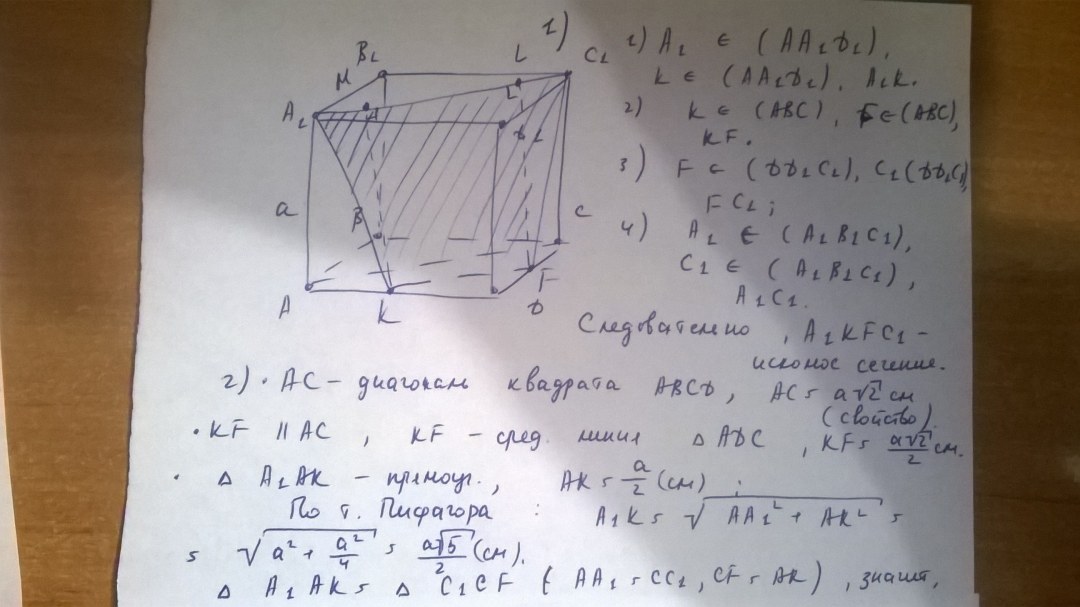 1)
1) A₁ ∈ (AA₁D₁),
K ∈ (AA₁D₁), A₁K.
2) K ∈ (ABC), F ∈ (ABC),
KF.
3) F ∈ (DD₁C₁), C₁(DD₁C₁)
FC₁;
4) A₁ ∈ (A₁B₁C₁),
C₁ ∈ (A₁B₁C₁),
A₁C₁.
B₁
M
L
C₁
A₁
D₁
a
B
C
A
K
F
D
Следовательно, A₁KFC₁ -
искомое сечение.
2) · AC - диагональ квадрата ABCD, AC = a√2 см
(свойство).
· KF || AC, KF - сред. линия △ ADC, KF = a√2/2 см.
· △ A₁AK - прямоуг., AK = a/2 (см);
По т. Пифагора: A₁K = √AA₁² + AK² =
= √a² + a²/4 = a√5/2 (см).
△ A₁AK = △ C₁CF (AA₁ = CC₁, CF = AK), значит,